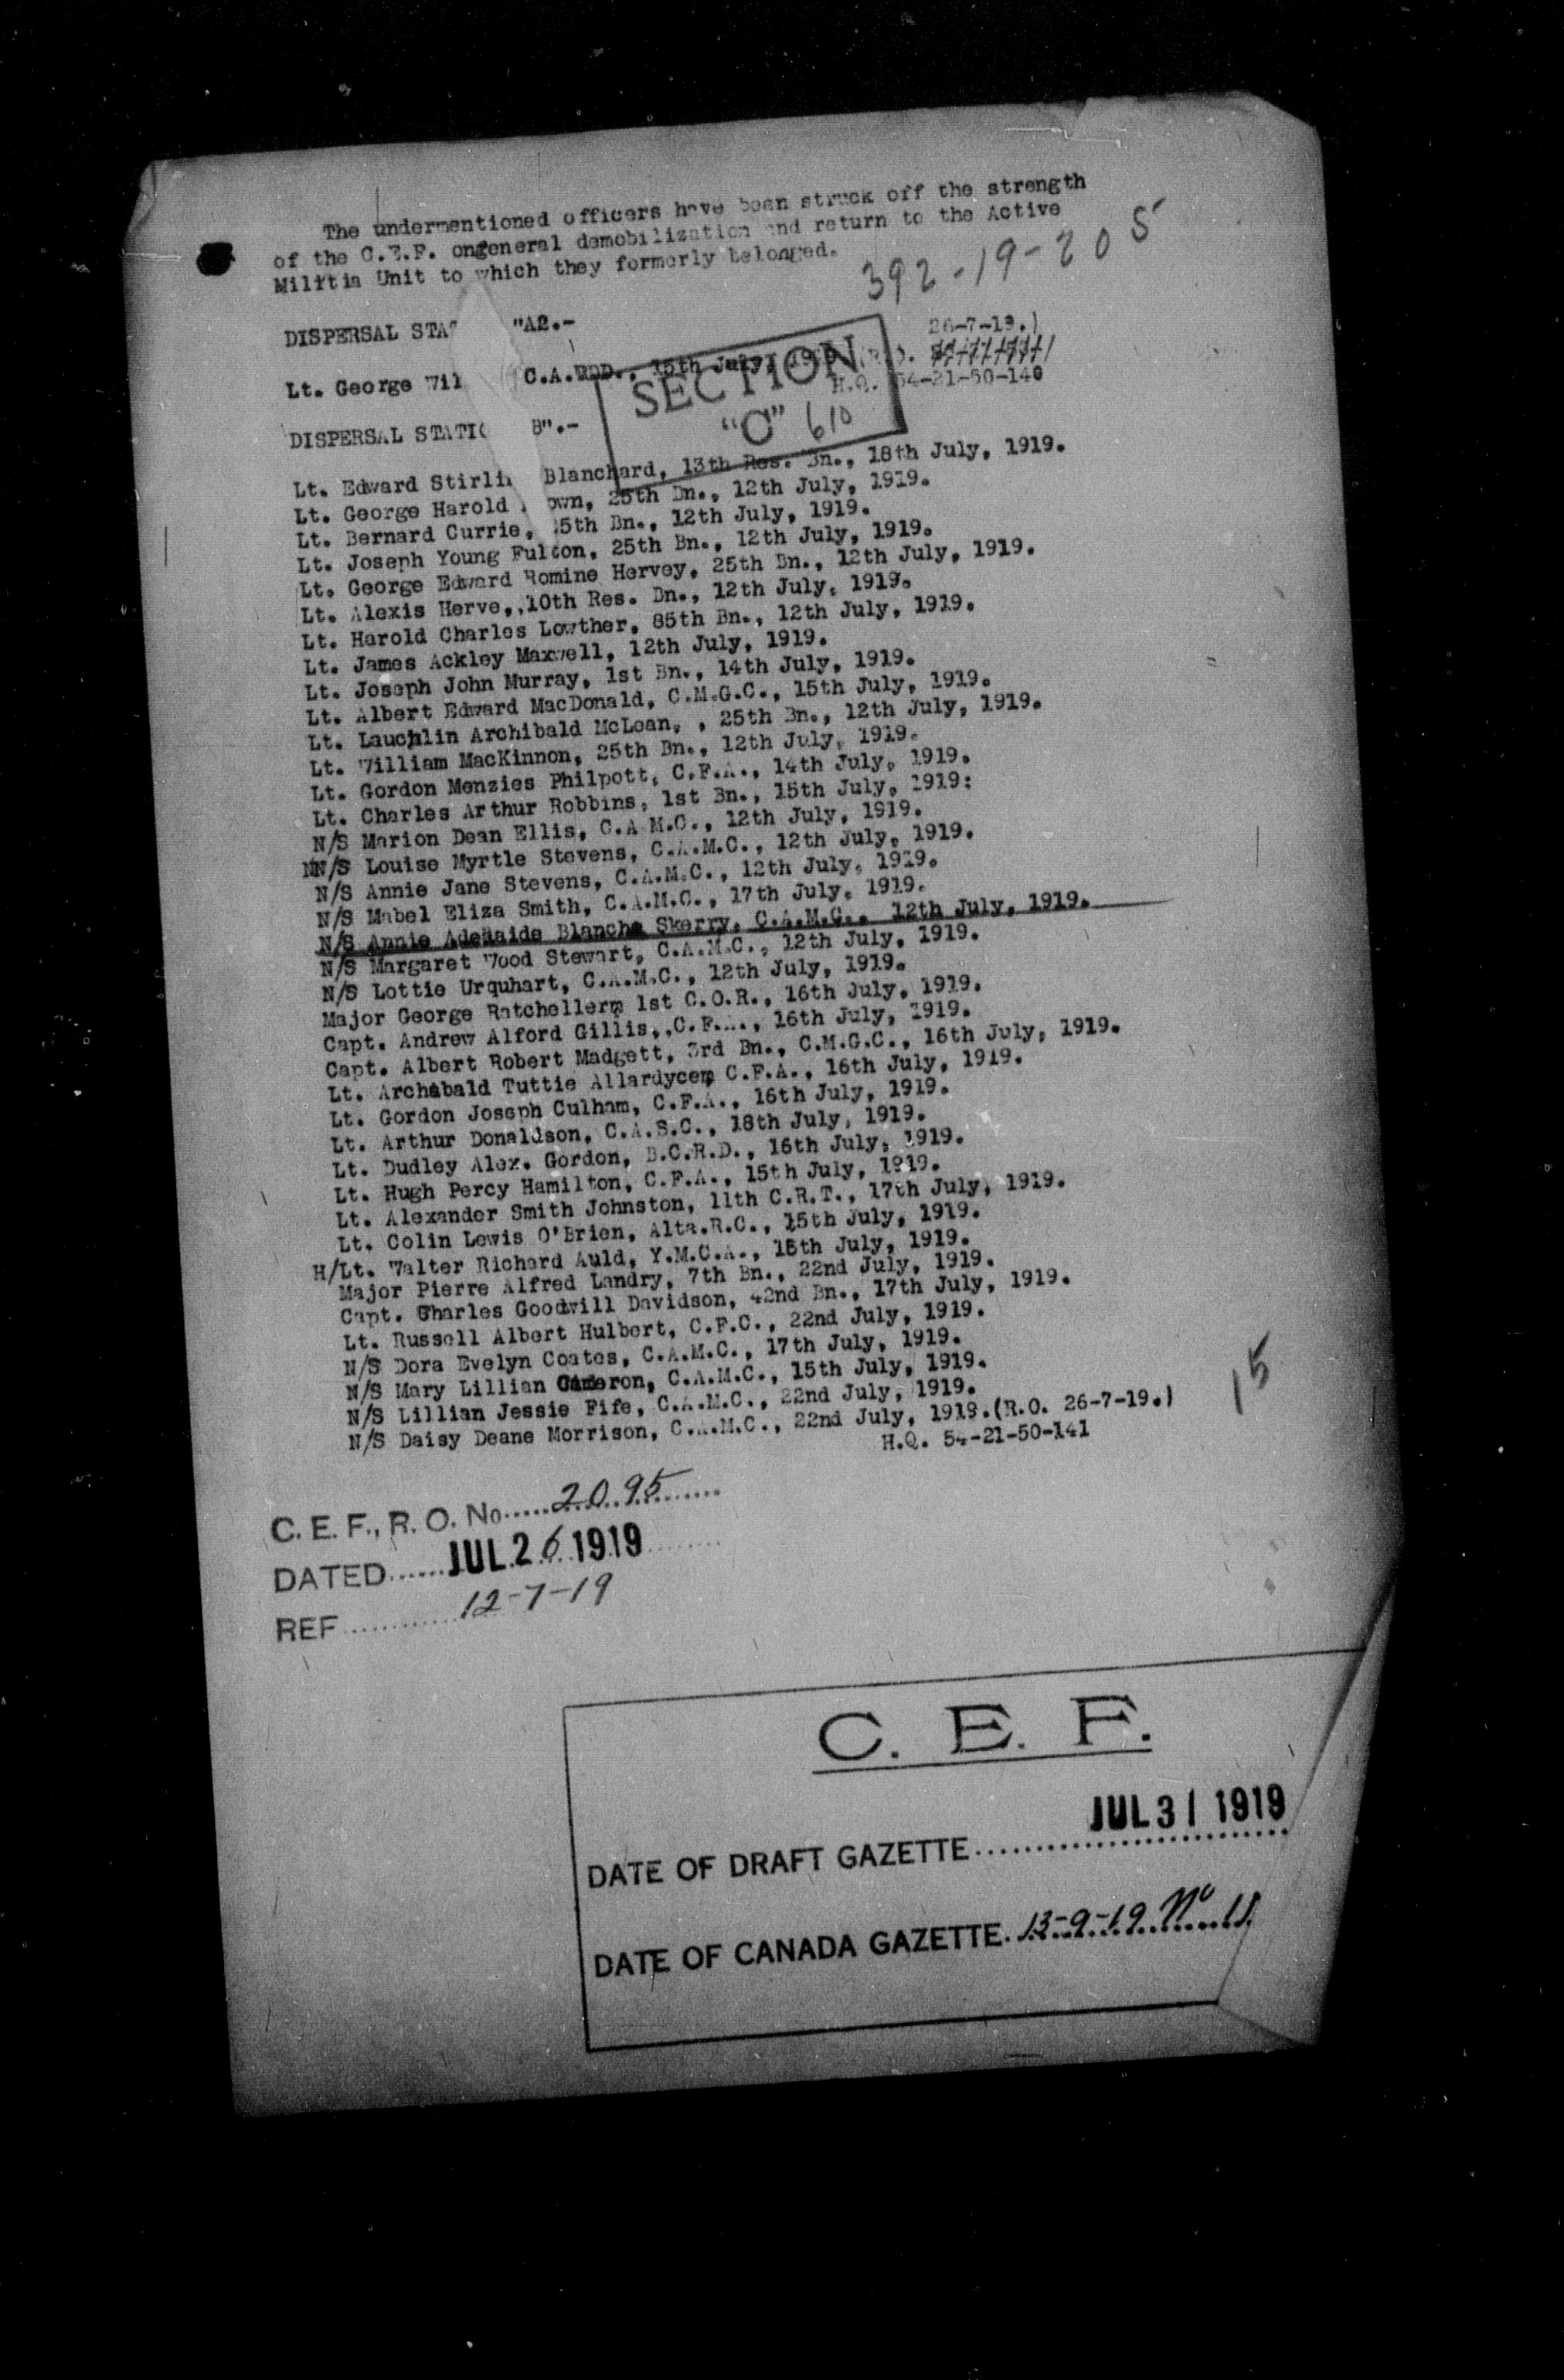 The undermentioned officers have been struck off the strength
of the C.E.F. ongeneral demobilization and return to the Active
Militia Unit to which they formerly belonged.
392-19-205
DISPERSAL STA "A2.-
26-7-19.)
Lt. George Wil C.A.  15th July, 19
H.Q. 54-21-50-140
SECTION
"C" 610
DISPERSAL STATI B".-
Lt. Edward Stirli Blanchard, 13th Res. Bn., 18th July, 1919.
Lt. George Harold own, 25th Bn., 12th July, 1919.
Lt. Bernard Currie, 5th Bn., 12th July, 1919.
Lt. Joseph Young Fulton, 25th Bn., 12th July, 1919.
Lt. George Edward Romine Hervey, 25th Bn., 12th July, 1919.
Lt. Alexis Herve,,10th Res. Bn., 12th July, 1919.
Lt. Harold Charles Lowther, 85th Bn., 12th July, 1919.
Lt. James Ackley Maxwell, 12th July, 1919.
Lt. Joseph John Murray, 1st Bn., 14th July, 1919.
Lt. Albert Edward MacDonald, C.M.G.C., 15th July, 1919.
Lt. Lauchlin Archibald McLean, , 25th Bn., 12th July, 1919.
Lt. William MacKinnon, 25th Bn., 12th July, 1919.
Lt. Gordon Menzies Philpott, C.F.A., 14th July, 1919.
Lt. Charles Arthur Robbins, 1st Bn., 15th July, 1919:
N/S Marion Dean Ellis, C.A.M.C., 12th July, 1919.
NN/S Louise Myrtle Stevens, C.A.M.C., 12th July, 1919.
N/S Annie Jane Stevens, C.A.M.C., 12th July, 1919.
N/S Mabel Eliza Smith, C.A.M.C., 17th July, 1919.
N/S Annie Adelaide Blanche Skerry, C.A.M.C., 12th July, 1919.
N/S Margaret Wood Stewart, C.A.M.C., 12th July, 1919.
N/S Lottie Urquhart, C.A.M.C., 12th July, 1919.
Major George Ratchellerm 1st C.O.R., 16th July, 1919.
Capt. Andrew Alford Gillis,,C.F.A., 16th July, 1919.
Capt. Albert Robert Madgett, 3rd Bn., C.M.G.C., 16th July, 1919.
Lt. Archabald Tuttie Allardycem C.F.A., 16th July, 1919.
Lt. Gordon Joseph Culham, C.F.A., 16th July, 1919.
Lt. Arthur Donaldson, C.A.S.C., 18th July, 1919.
Lt. Dudley Alex. Gordon, B.C.R.D., 16th July, 1919.
Lt. Hugh Percy Hamilton, C.F.A., 15th July, 1919.
Lt. Alexander Smith Johnston, 11th C.R.T., 17th July, 1919.
Lt. Colin Lewis O'Brien, Alta.R.C., 15th July, 1919.
H/Lt. Walter Richard Auld, Y.M.C.A., 15th July, 1919.
Major Pierre Alfred Landry, 7th Bn., 22nd July, 1919.
Capt. Charles Goodwill Davidson, 42nd Bn., 17th July, 1919.
Lt. Russell Albert Hulbert, C.F.C., 22nd July, 1919.
N/S Dora Evelyn Coates, C.A.M.C., 17th July, 1919.
N/S Mary Lillian Cameron, C.A.M.C., 15th July, 1919.
N/S Lillian Jessie Fife, C.A.M.C., 22nd July, 1919.
N/S Daisy Deane Morrison, C.A.M.C., 22nd July, 1919.(R.O. 26-7-19.)
H.Q. 54-21-50-141
15
C. E. F., R. O. No. 2095
DATED JUL 26 1919
REF 12-7-19
C. E. F.
JUL 31 1919
DATE OF DRAFT GAZETTE
DATE OF CANADA GAZETTE. 13-9-19 No 11